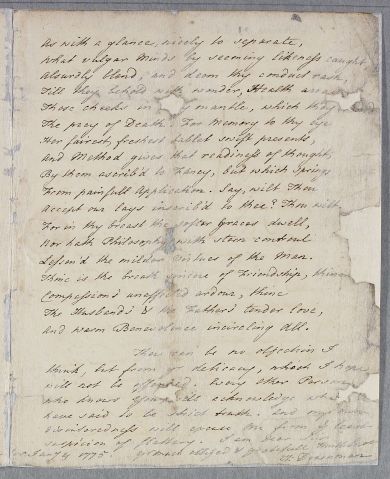 As with a glance, nicely to separate,
What vulgar Minds by seeming likeness caught
Absurdly blend, and deem thy conduct rash,
Till they behold with wonder, Health
These cheeks in mantle, which they
The prey of Death. For Memory to thy eye
Her fairest, freshest tablet swift presents,
And Method gives that readiness of thought,
By them ascrib'd to Fancy, but which springs
From painfull Application. Say, wilt Thou
Accept our Lays inscrib'd to thee? Thou wilt
For in thy breast the softer Graces dwell,
Nor hath Philosophy with stern controul
Lessen'd the milder Virtues of the Man.
Thine is the breath sincere of Friendship, thine
Compassion's unaffected ardour, thine
The Husband's & the Father's tender love,
And warm Benevolence incircling All.
There can be no objection I
think, but from yr delicacy, which I hope
will not be offended. Every other Person
who knows you acknowledge what I
have said to be strict truth. And my own
disinterestedness will me from yr least
suspicion of flattery. I am Dear Sir
Jany 4 1775 yr most obliged & gratefull